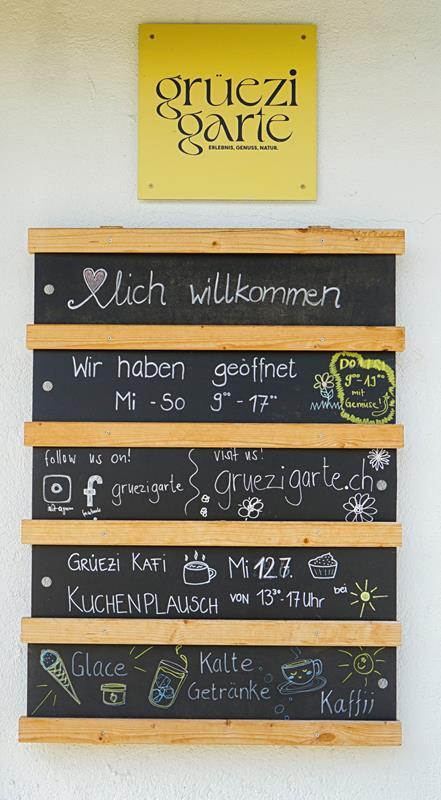 grüezi
garte
ERLEBNIS, GENUSS, NATUR.
lich willkommen
Wir haben geöffnet
Mi - So 9⁰⁰ - 17⁰⁰
9⁰⁰-19⁰⁰
mit
Gemüse!
follow us on!
gruezigarte
visit us!
gruezigarte.ch
GRÜEZI KAFI
Mi 12.7.
KUCHENPLAUSCH VON 13³⁰-17 Uhr bei
Glace
Kalte
Getränke
Kaffii